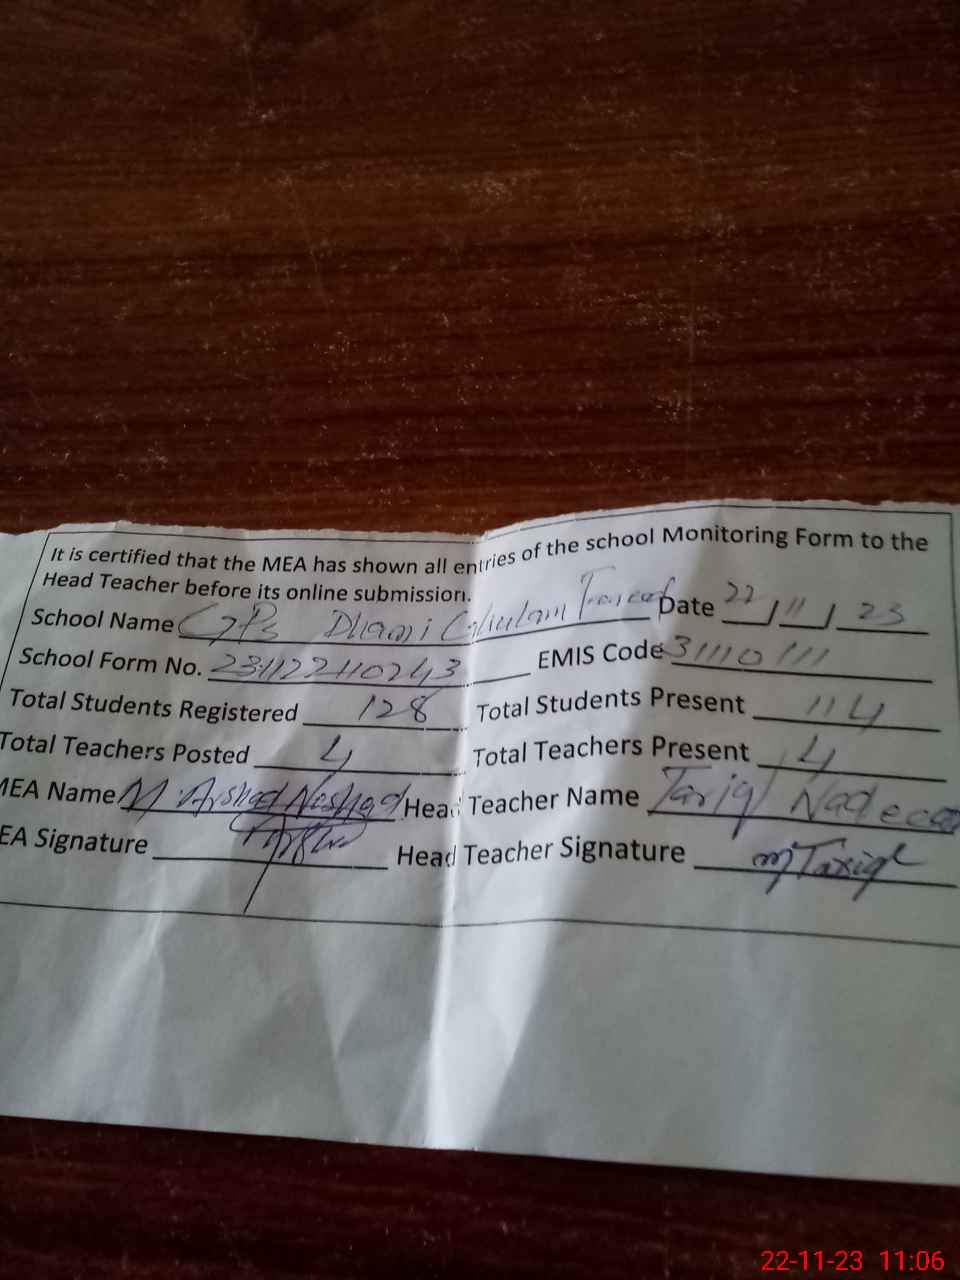 It is certified that the MEA has shown all entries of the school Monitoring Form to the
Head Teacher before its online submission.
School Name GPS Dhami Ghulam Date 22/11/23
School Form No. 231122110243 EMIS Code 31110111
Total Students Registered 128 Total Students Present 114
Total Teachers Posted 4 Total Teachers Present 4
MEA Name M. Arshad Head Teacher Name Tariq Nadeem
EA Signature Head Teacher Signature m Tariq
22-11-23 11:06